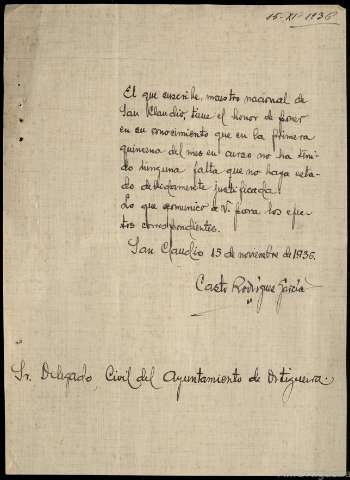 15-XI-1936
El que suscribe, maestro nacional de
San Claudio, tiene el honor de poner
en su conocimiento que en la primera
quincena del mes en curso no ha teni-
do ninguna falta que no haya esta-
do debidamente justificada.
Lo que comunico a V. para los efec-
tos correspondientes.
San Claudio 15 de noviembre de 1936.
Casto Rodríguez García
Sr. Delegado Civil del Ayuntamiento de Ortigueira.